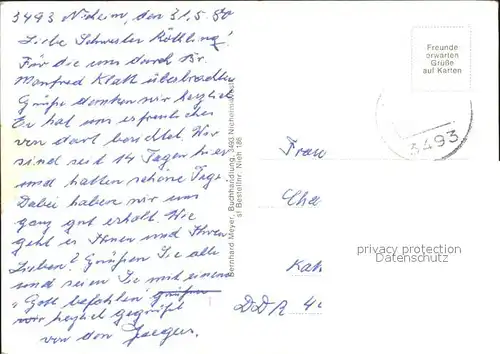 3493 Nieheim, den 31.5.80
Liebe Schwester Köthling!
Für die uns durch Br.
Manfred Klatt überbrachten
Grüße danken wir herzlich.
Er hat uns erfreuliches
von dort berichtet. Wir
sind seit 14 Tagen hier
und hatten schöne Tage.
Dabei haben wir uns
ganz gut erholt. Wie
geht es Ihnen und Ihren
Lieben? Grüßen Sie alle
und seien Sie mit einem
"Gott befohlen" grüßen
wir herzlich gegrüßt
von den Jaeger.
Bernhard Meyer, Buchhandlung, 3493 Nieheim
Bestellnr. Nien 186
Freunde
erwarten
Grüße
auf Karten
3493
Frau
Cha
Kat
DDR 4
privacy protection
Datenschutz